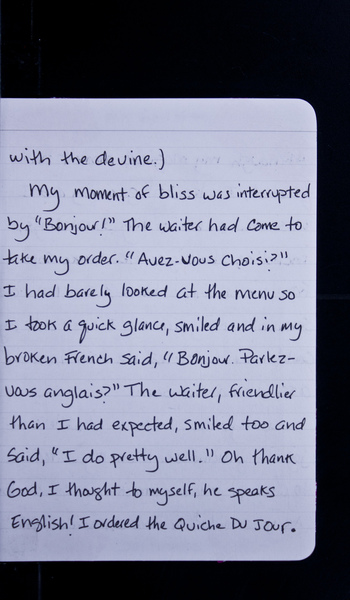 with the devine.)
My moment of bliss was interrupted
by "Bonjour!" The waiter had come to
take my order. "Avez-vous choisi?"
I had barely looked at the menu so
I took a quick glance, smiled and in my
broken French said, "Bonjour. Parlez-
vous anglais?" The waiter, friendlier
than I had expected, smiled too and
said, "I do pretty well." Oh thank
God, I thought to myself, he speaks
English! I ordered the Quiche Du Jour.